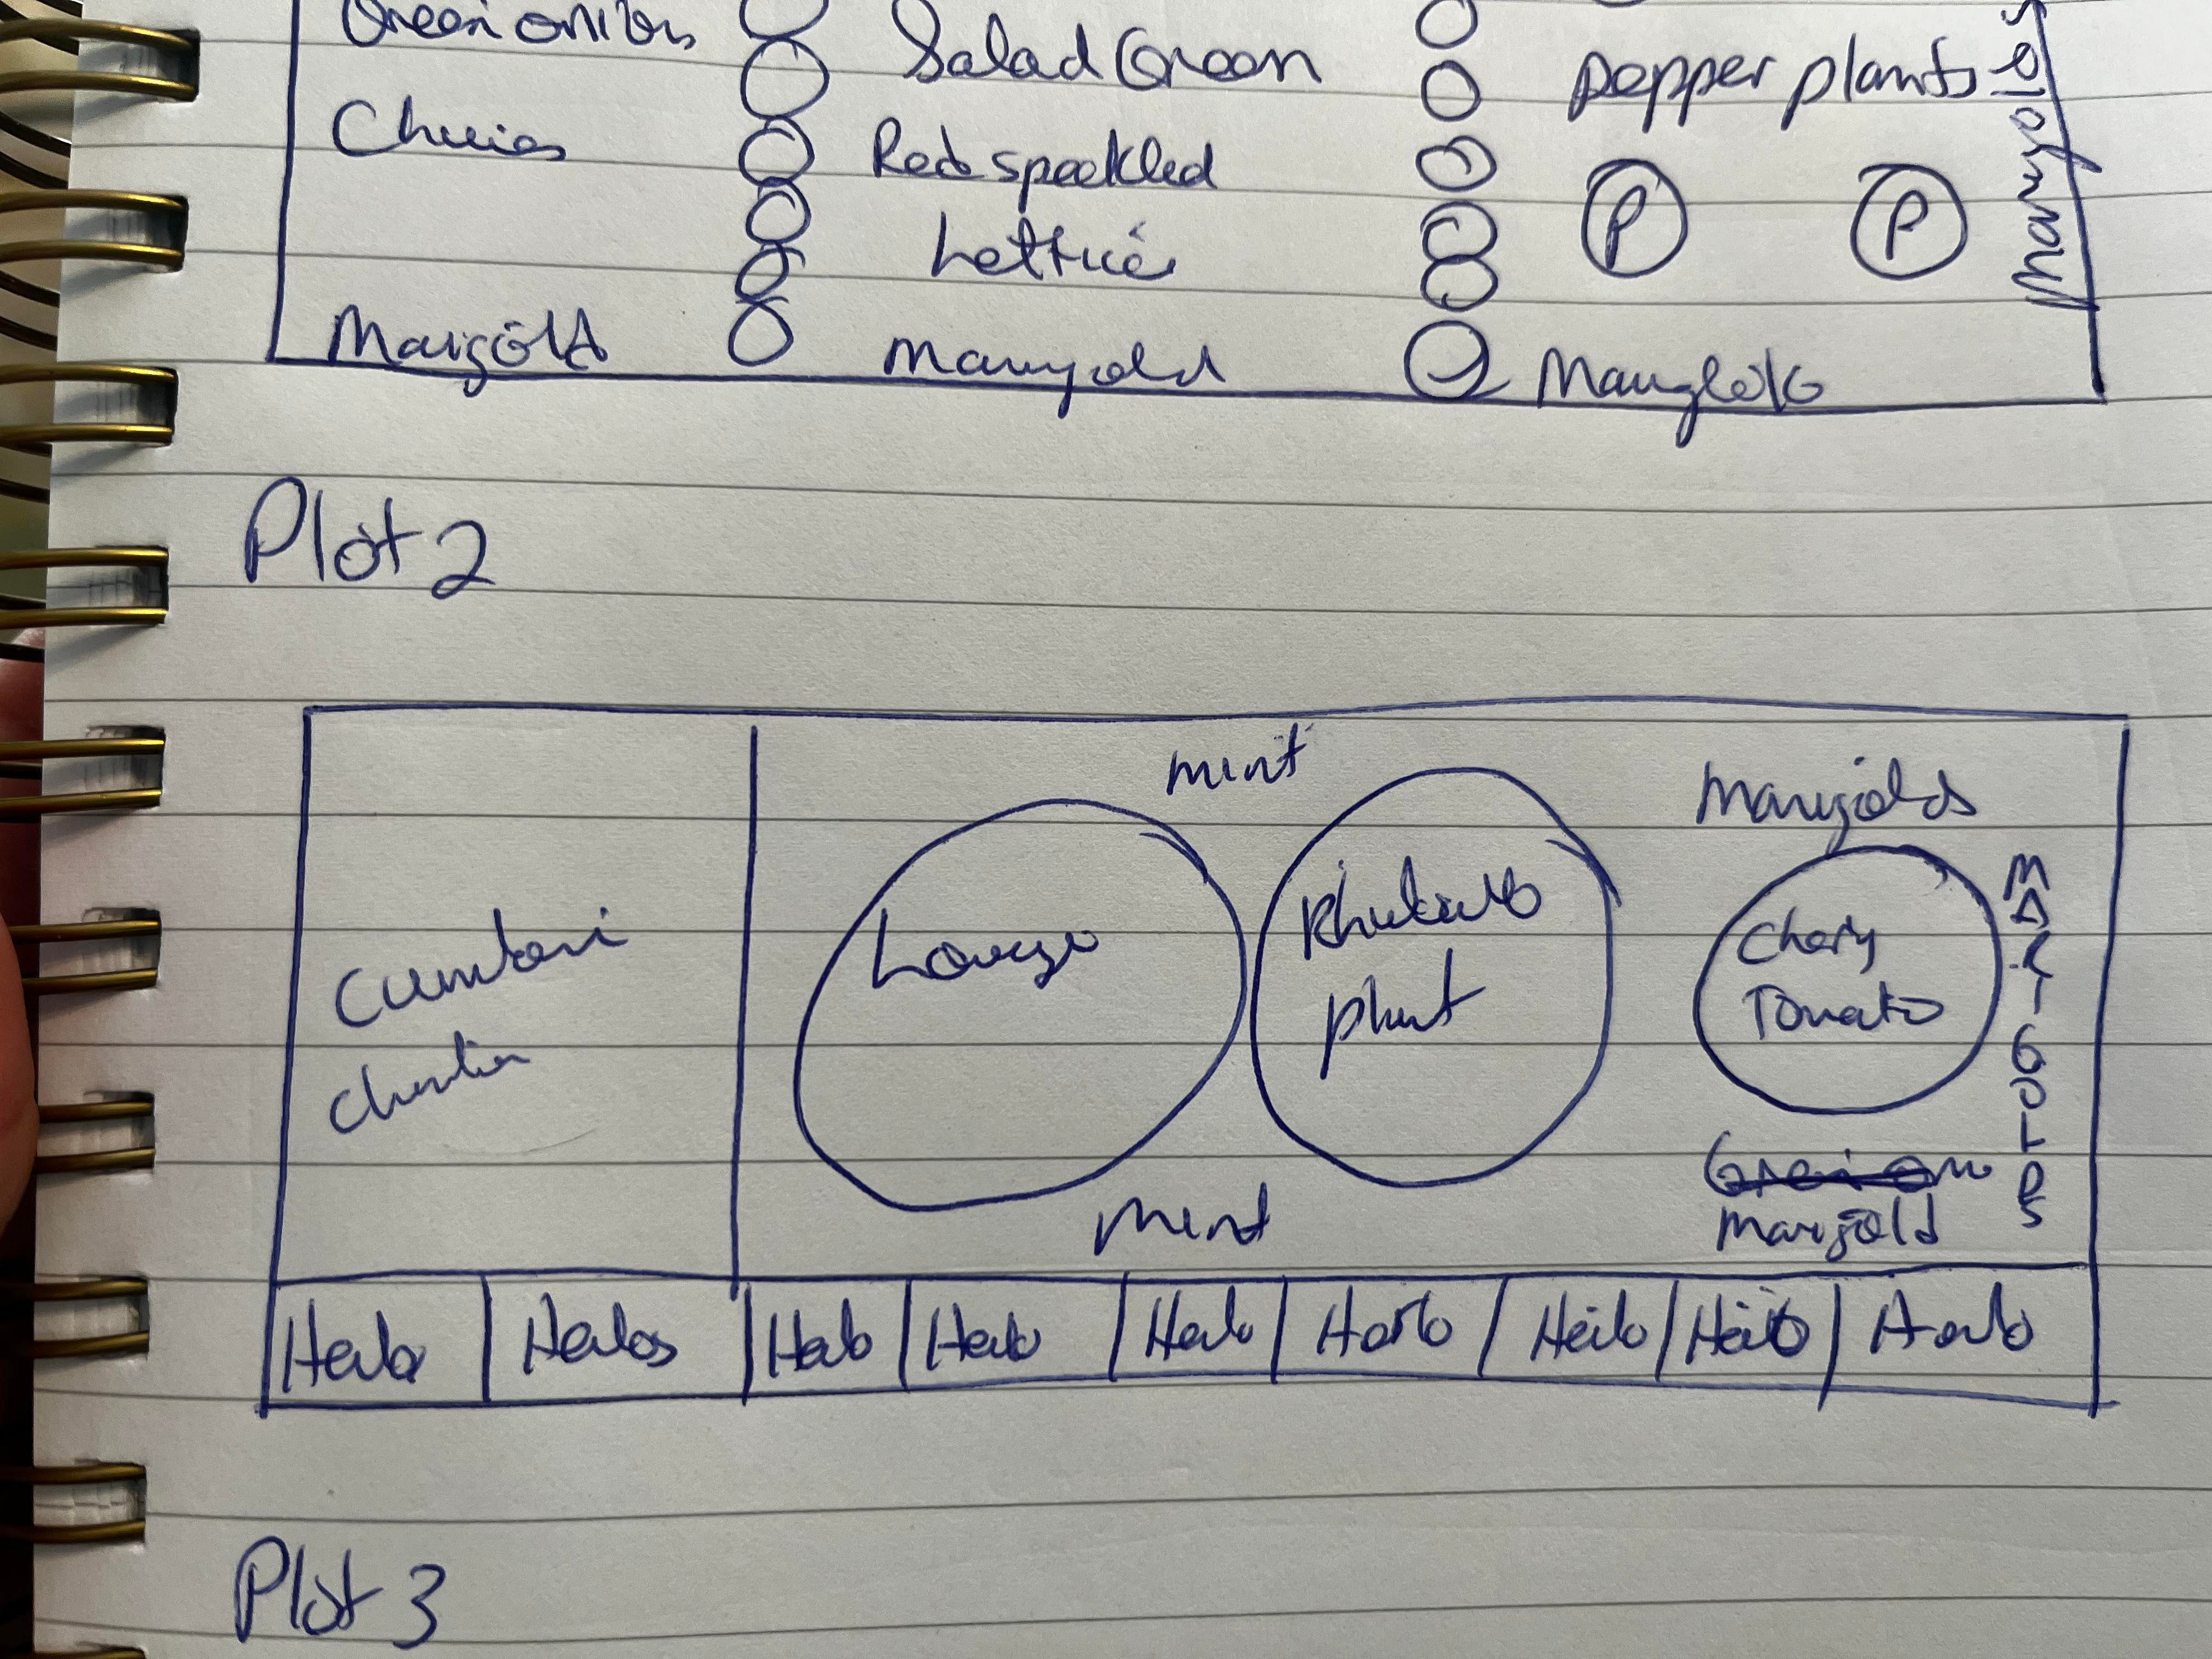 Green onions
Salad Green
pepper plants
Chives
Red speckled
Lettuce
P
P
Marigolds
Marigold
Marigold
Marigold
Plot 2
mint
Marigolds
MARIGOLDS
Rhubarb
plant
Cherry
Tomato
Mint
Marigold
Herb
Herbs
Herb
Herb
Herb
Herb
Herb
Herb
Herb
Plot 3